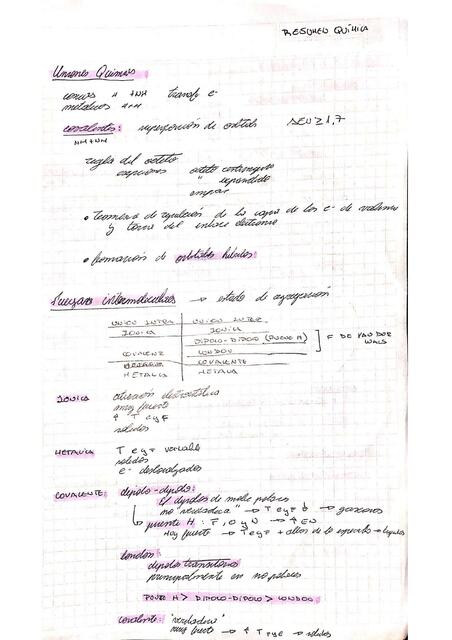 RESUMEN QUÍMICA
Uniones Químicas
iónicas M + NM transf e-
metálicas M+M
covalentes: superposición de orbitales ΔEN≥1,7
NM+NM
regla del octeto
excepciones octeto contemplado
" expandido
impar
• teorema de repulsión de la capa de los e- de valencia
y torno del enlace
• formación de orbitales híbridos
Fuerzas intermoleculares → estado de agregación
UNION INTRA UNION INTER
IONICA IONICA
DIPOLO-DIPOLO (PUENTE H)
COVALENTE LONDON
COVALENTE
METALICA METALICA
F DE VAN DER
WALS
IONICA atracción electrostática
muy fuerte
↑ T e y F
solidos
METALICA T e y F variable
solidos
e- deslocalizados
COVALENTE: dipolo-dipolo:
dipolos de molec polares
→ T e y F ↓ → gaseosos
puente H: F, O y N → ↑ EN
Muy fuerte → T e y F + altos de lo esperado → liquidos
London
dipolos transitorios
principalmente en no polares
PUENTE H > DIPOLO-DIPOLO > LONDON
covalente: "verdadera"
muy fuerte → ↑ T f y e → solidos